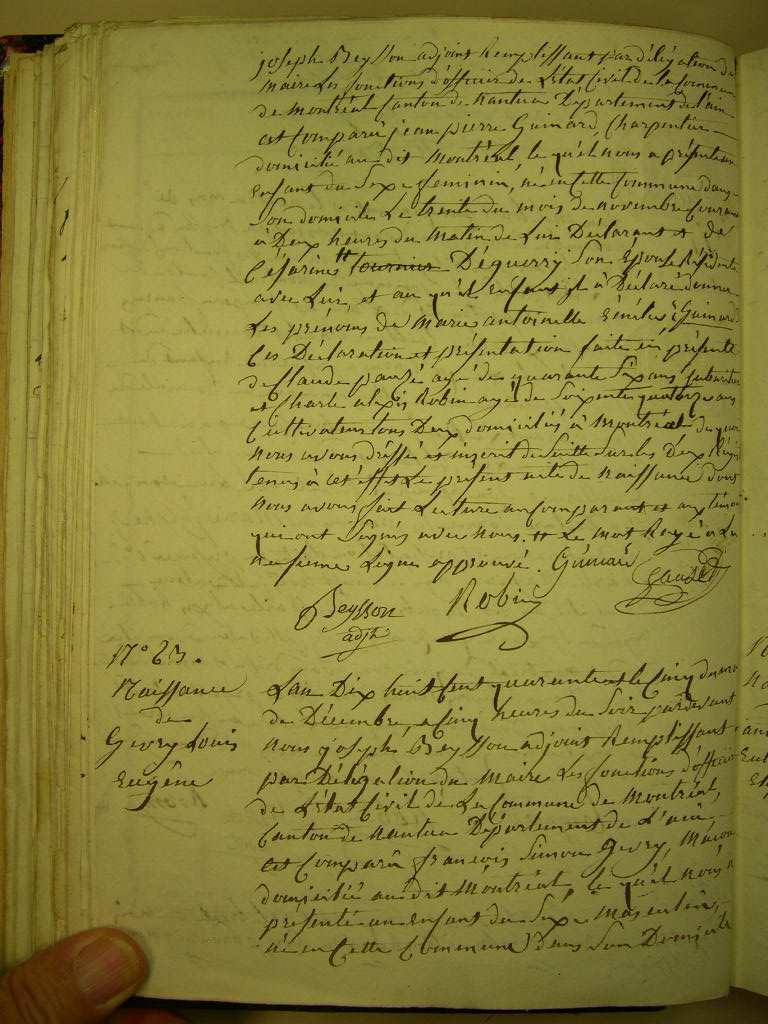 joseph Beysson adjoint Remplissant par délégation du
Maire Les fonctions d'officier de L'état Civil de la Commune
de Montréal Canton de Nantua Département de l'ain
est Comparu jean pierre Guinard, Charpentier
domicilié au dit Montréal, le qu'el nous a présenté un
Enfant du Sexe feminin, né en Cette Commune dans
Son domicile Le trente du mois de novembre Courant
à Deux heures du Matin de Lui Déclarant et de
Césarine # tournier Déguerry Son Epouse Résidente
avec Lui, et au qu'el Enfant il à Déclaré donner
Les prénoms de Marie antoinette Guinard
Ces Déclaration et présentation faite en présence
de Claude agé de quarante Six ans
et Charle alexis Robin agé de Soixente quatorze ans
Cultivateur tous Deux domiciliés à Montréal du quoi
Nous avons dréssé et inscrit de Suitte Sur les Deux Régis
tenus à cet éffet Le présent acte de Naissance dont
Nous avons fait Lecture au comparant et aux témoins
qui ont Signés avec Nous. # Le mot Rayé à La
neufieme Ligne approuvé. Guinard
Beysson Robin
adjt
N° 63.
Naissance
de
Gevry Louis
Eugêne
L'an Dix huit Cent quarante et le Cinq du mois
de Décembre a Cinq heures du Soir pardevant
Nous joseph Beysson adjoint Remplissant
par Délégation du Maire Les fonctions d'officier
de L'état Civil de La Commune de Montréal,
Canton de Nantua Département de L'ain,
est Comparu françois Simon Gevry, Macon
domicilié au dit Montréal, le qu'el nous a
présenté un Enfant du Sexe Masculin,
né en Cette Commune dans Son Domicile